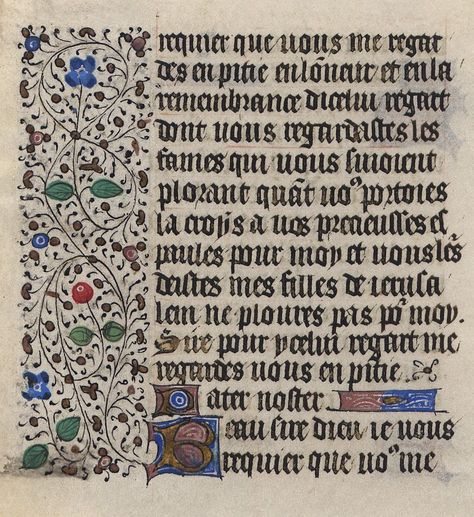 requier que vous me regar
des en pitie en lõneur et en la
remembrance dicelui regart
dont vous regardastes les
fames qui vous suioient
plorant quãt voꝰ portoies
la croys a vos precieusses es
paules pour moy et vous lr̃
deistes mes filles de ierusa
lem ne ploures pas põ moy.
Sire pour ycelui regart me
regardes vous en pitie
Pater noster
Beau sire dieu ie vous
requier que voꝰ me